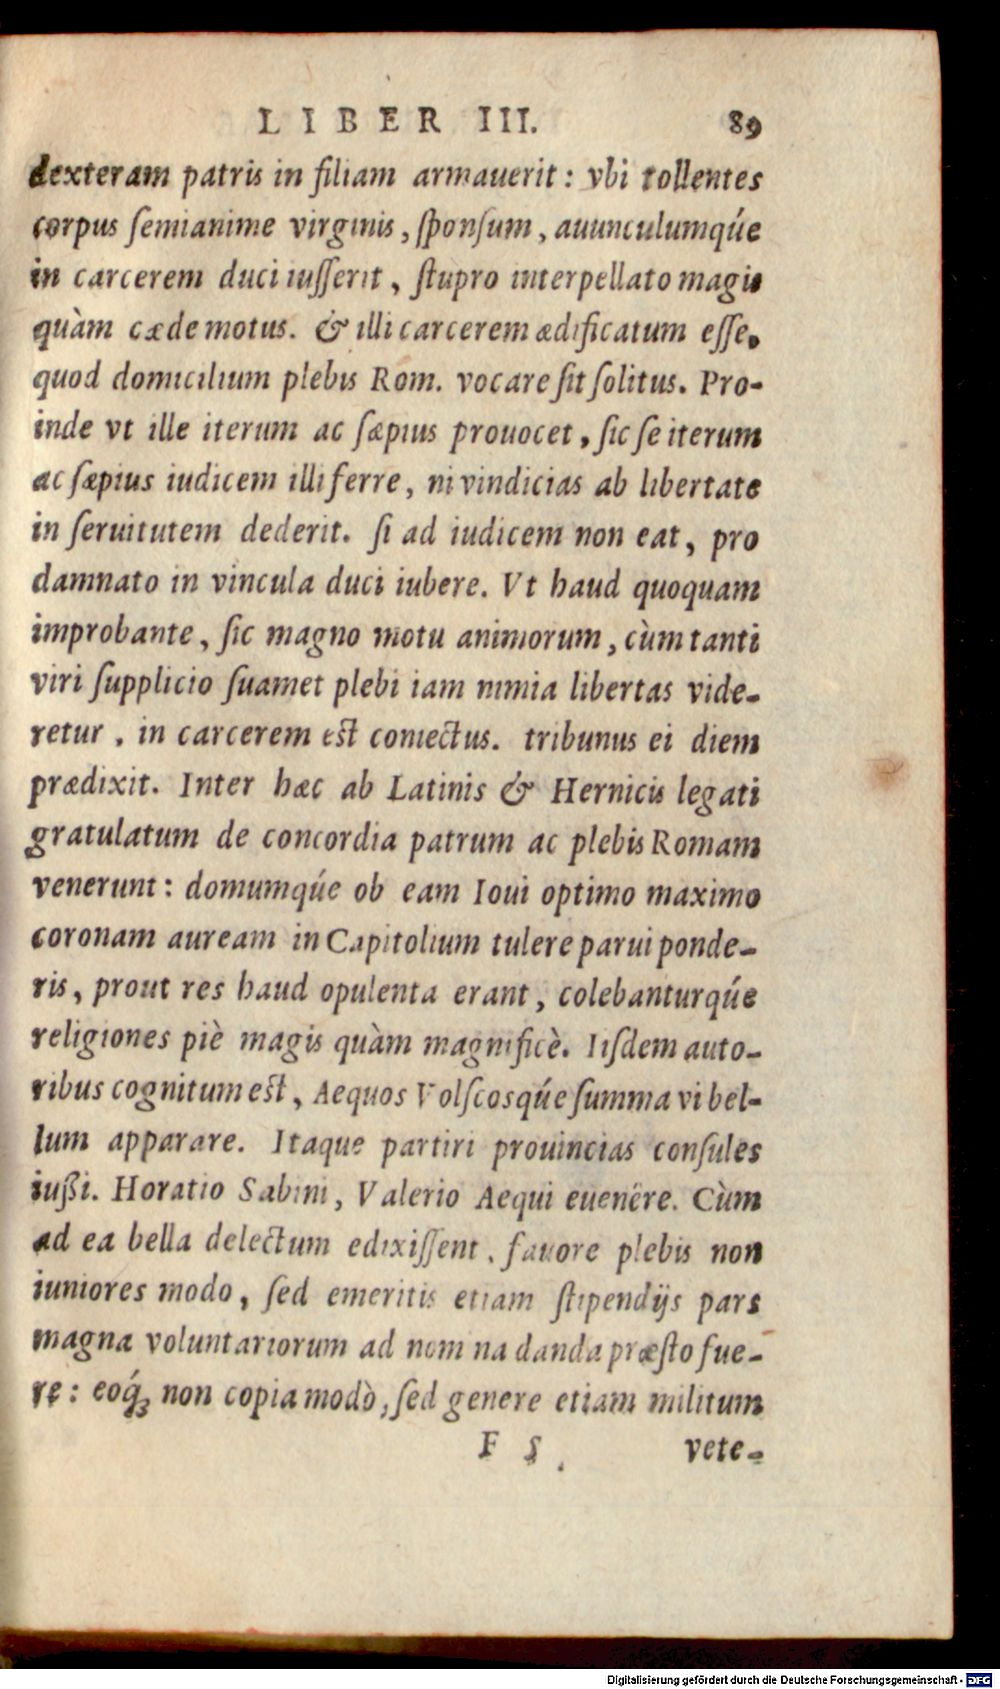 LIBER III. 89
dexteram patris in filiam armauerit: vbi tollentes
corpus semianime virginis, sponsum, auunculumqúe
in carcerem duci iusserit, stupro interpellato magis
quàm cæde motus. & illi carcerem ædificatum esse,
quod domicilium plebis Rom. vocare sit solitus. Pro-
inde vt ille iterum ac sæpius prouocet, sic se iterum
ac sæpius iudicem illi ferre, ni vindicias ab libertate
in seruitutem dederit. si ad iudicem non eat, pro
damnato in vincula duci iubere. Vt haud quoquam
improbante, sic magno motu animorum, cùm tanti
viri supplicio suamet plebi iam nimia libertas vide-
retur, in carcerem est coniectus. tribunus ei diem
prædixit. Inter hæc ab Latinis & Hernicis legati
gratulatum de concordia patrum ac plebis Romam
venerunt: domumqúe ob eam Ioui optimo maximo
coronam auream in Capitolium tulere parui ponde-
ris, prout res haud opulenta erant, colebanturqúe
religiones piè magis quàm magnificè. Iisdem auto-
ribus cognitum est, Aequos Volscosqúe summa vi bel-
lum apparare. Itaque partiri prouincias consules
iußi. Horatio Sabini, Valerio Aequi euenêre. Cùm
ad ea bella delectum edixissent, fauore plebis non
iuniores modo, sed emeritis etiam stipendijs pars
magna voluntariorum ad nomina danda præsto fue-
re: eoq́; non copia modò, sed genere etiam militum
F 5 vete-
Digitalisierung gefördert durch die Deutsche Forschungsgemeinschaft - DFG